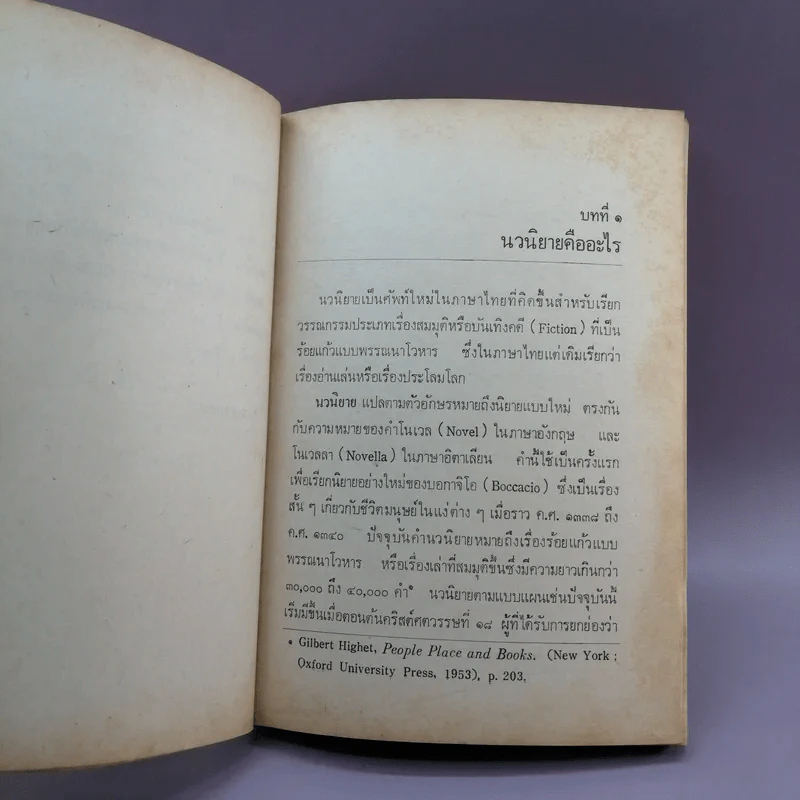 บทที่ ๑
นวนิยายคืออะไร
นวนิยายเป็นศัพท์ใหม่ในภาษาไทยที่คิดขึ้นสำหรับเรียก
วรรณกรรมประเภทเรื่องสมมุติหรือบันเทิงคดี (Fiction) ที่เป็น
ร้อยแก้วแบบพรรณนาโวหาร ซึ่งในภาษาไทยแต่เดิมเรียกว่า
เรื่องอ่านเล่นหรือเรื่องประโลมโลก
นวนิยาย แปลตามตัวอักษรหมายถึงนิยายแบบใหม่ ตรงกัน
กับความหมายของคำโนเวล (Novel) ในภาษาอังกฤษ และ
โนเวลลา (Novella) ในภาษาอิตาเลียน คำนี้ใช้เป็นครั้งแรก
เพื่อเรียกนิยายอย่างใหม่ของบอกาจิโอ (Boccacio) ซึ่งเป็นเรื่อง
สั้น ๆ เกี่ยวกับชีวิตมนุษย์ในแง่ต่าง ๆ เมื่อราว ค.ศ. ๑๓๓๘ ถึง
ค.ศ. ๑๓๔๐ ปัจจุบันคำนวนิยายหมายถึงเรื่องร้อยแก้วแบบ
พรรณนาโวหาร หรือเรื่องเล่าที่สมมุติขึ้นซึ่งมีความยาวเกินกว่า
๓๐,๐๐๐ ถึง ๔๐,๐๐๐ คำ* นวนิยายตามแบบแผนเช่นปัจจุบันนี้
เริ่มมีขึ้นเมื่อตอนต้นคริสต์ศตวรรษที่ ๑๘ ผู้ที่ได้รับการยกย่องว่า
* Gilbert Highet, People Place and Books. (New York :
Oxford University Press, 1953), p. 203.